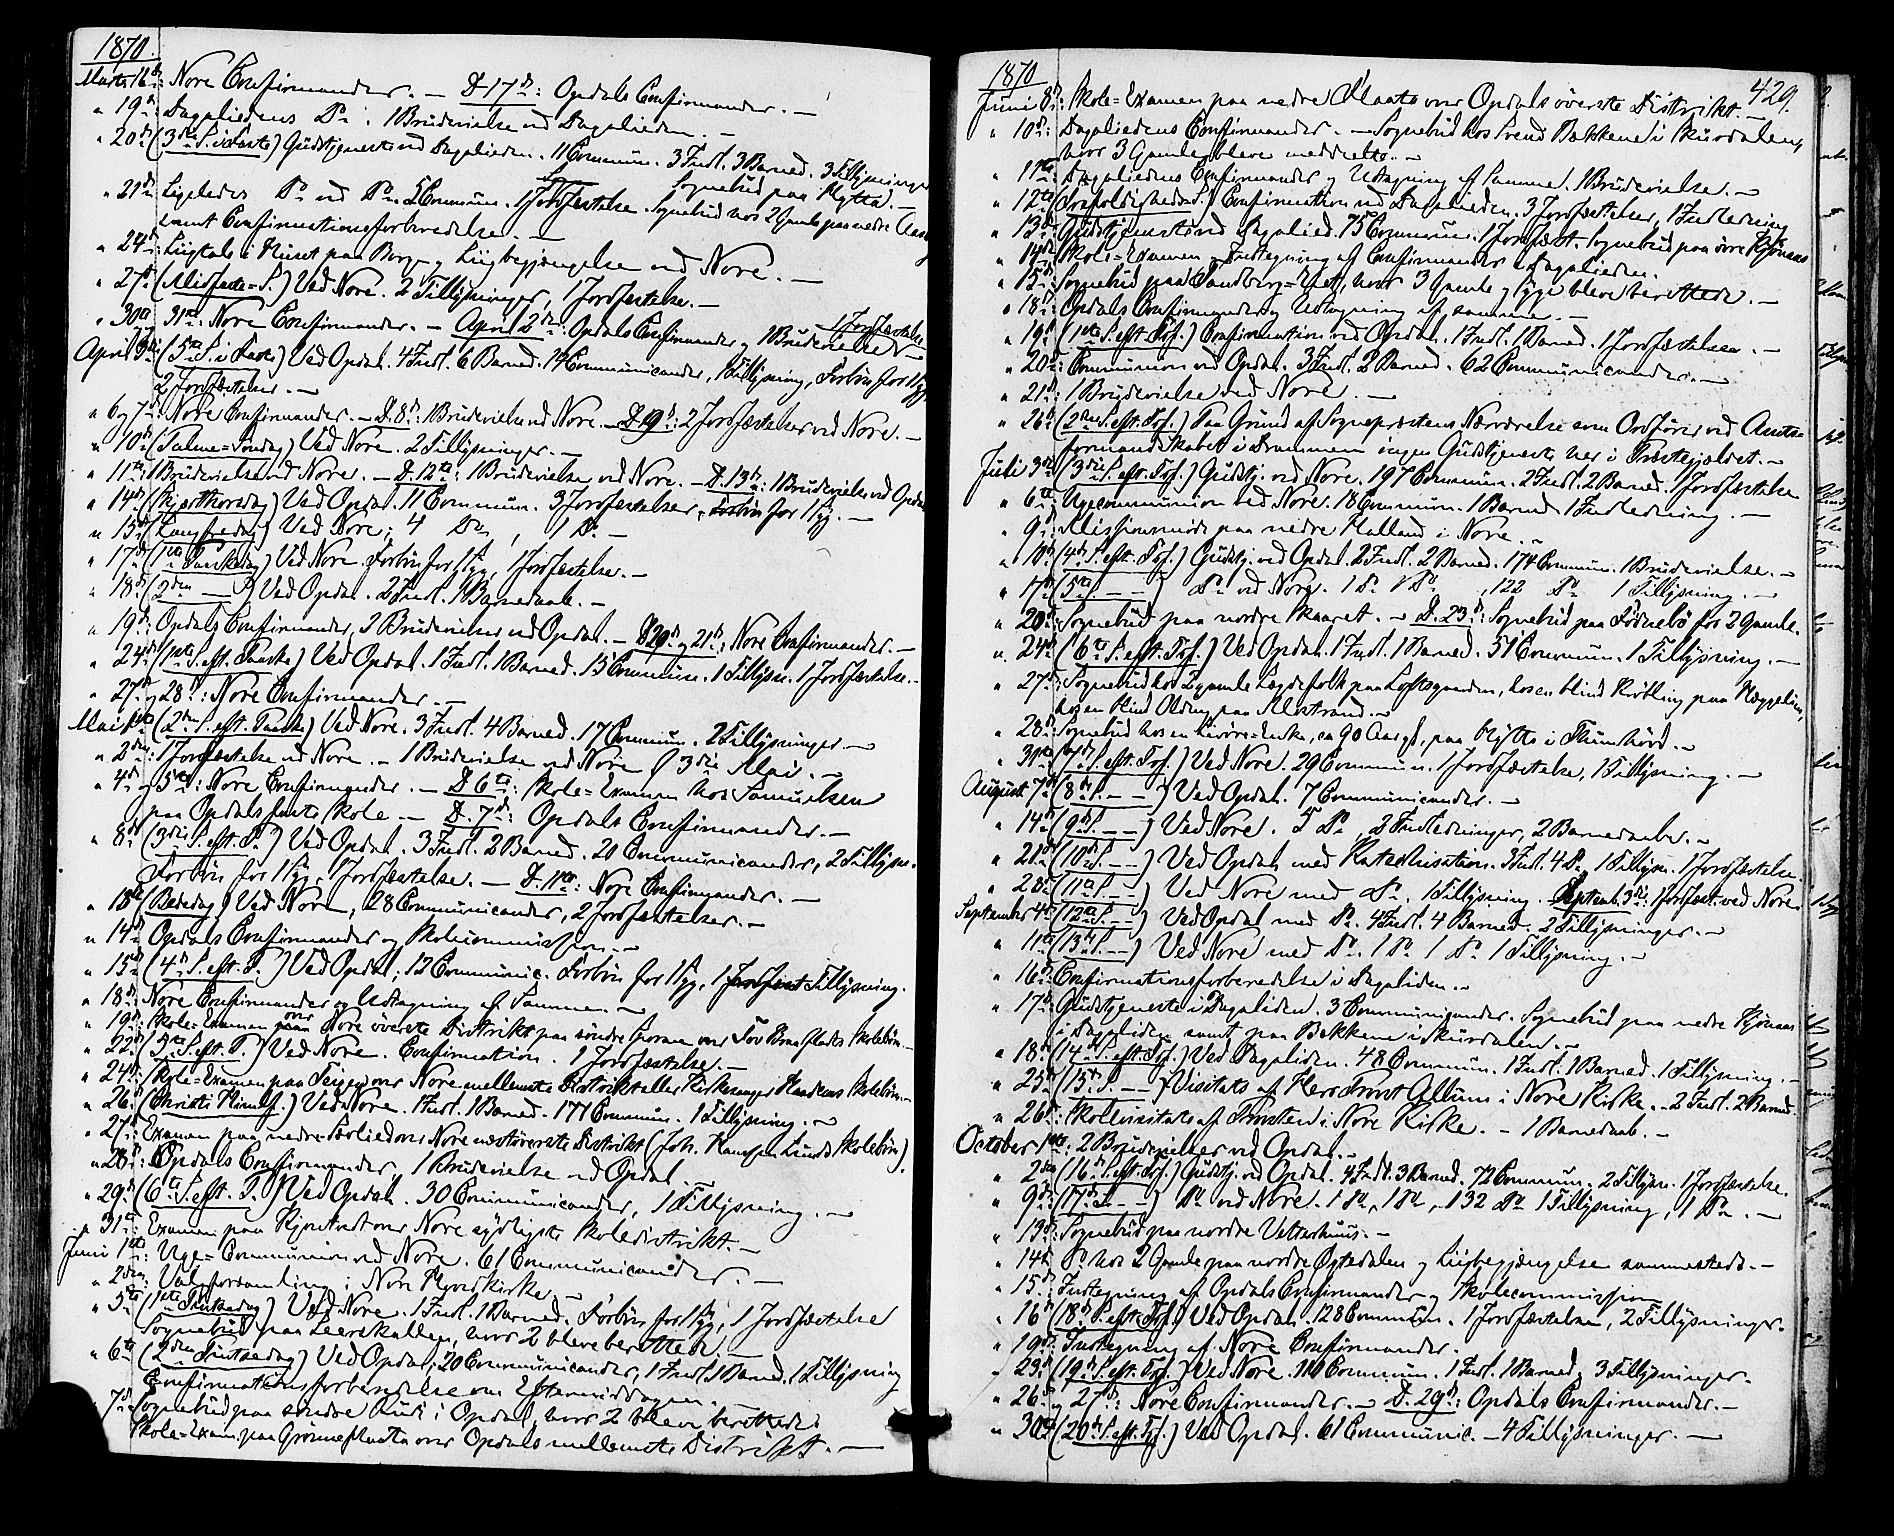 1870.
Marts 16d: Nore Confirmander. — D. 17d: Opdals Confirmander. —
" 19d: Dagaliedens Do: 1 Brudevielse ved Dagalieden. —
" 20d (3die S. i Faste) Gudstjeneste ved Dagalieden. 11 Commun. 3 Indl. 3 Barned. 3 Tillysninger
Sognebud paa Hytta. —
" 21d Ligeledes Do ved Do. 5 Commun. 1 Jordfæstelse. Sognebud hos 2 Gamle paa nedre Aasen
samt Confirmationsforberedelse. —
" 24d: Liigtale i Huset paa Berg og Liigbegjængelse ved Nore. —
" 27d (Midfaste-S.) Ved Nore. 2 Tillysninger, 1 Jordfæstelse. —
" 30te 31te: Nore Confirmander. — April 2den: Opdals Confirmander og 1 Brudevielse 1 Jordfæstelse
April 3die (5te S. i Faste) Ved Opdal. 4 Indl. 6 Barned. 14 Communicander, 1 Tillysning, Forbøn for 1 Syg,
2 Jordfæstelser. —
" 6 og 7d: Nore Confirmander. — D. 8d: 1 Brudevielse ved Nore. — D. 9d: 2 Jordfæstelser ved Nore. —
" 10d (Palme-Søndag) Ved Nore. 2 Tillysninger. —
" 11te: 1 Brudevielse ved Nore. — D. 12te: 1 Brudevielse ved Nore. — D. 13d: 1 Brudevielse ved Opdal
" 14d (Skjærthorsdag) Ved Opdal. 11 Commun. 3 Jordfæstelser, Forbøn for 1 Syg. —
" 15d (Langfredag) Ved Nore; 4 Do, 1 Do. —
" 17d (1ste Paaskedag) Ved Nore. Forbøn for 1 Syg, 1 Jordfæstelse. —
" 18d (2den — ) Ved Opdal. 2 Indl. 1 Barnedaab. —
" 19d: Opdals Confirmander, 2 Brudevielser ved Opdal. — D. 20d og 21d: Nore Confirmander. —
" 24d (1ste S. eft. Paaske) Ved Opdal. 1 Indl. 1 Barned. 15 Commun. 1 Tillysn. 1 Jordfæstelse. —
" 27d og 28d: Nore Confirmander. —
Mai 1ste (2den S. eft. Paaske) Ved Nore. 3 Indl. 4 Barned. 17 Commun. 2 Tillysninger —
" 2den: 1 Jordfæstelse ved Nore. — 1 Brudevielse ved Nore d. 3die Mai. —
" 4d og 5te: Nore Confirmander. — D. 6te: Skole-Examen hos Samuelsen
paa Opdals faste Skole. — D. 7d: Opdals Confirmander. —
" 8d (3die S. eft. P.) Ved Opdal. 3 Indl. 2 Barned. 20 Communicander, 2 Tillysn.
Forbøn for 1 Syg, 1 Jordfæstelse. — D. 11te: Nore Confirmander. —
" 13d (Bededag) Ved Nore, 28 Communicander, 2 Jordfæstelser. —
" 14d Opdals Confirmander og Skolecommission. —
" 15d (4d S. eft. P.) Ved Opdal; 12 Communic. Forbøn for 1 Syg, 1 Tillysning.
" 18d: Nore Confirmander og Udtagning af Samme. —
" 19d: Skole-Examen over Nore øverste Distrikt paa søndre
" 22d (5te S. eft. P.) Ved Nore. Confirmation. 1 Jordfæstelse. —
" 24d: Skole-Examen paa over Nore mellemste Distrikt eller Kirkesanger Skolebørn. —
" 26d (Christi Himmelf.) Ved Nore. 1 Indl. 1 Barned. 171 Commun. 1 Tillysning. —
" 27d: Examen paa nedre over Nore næstøverste Distrikt (Joh. Hansen Skolebørn).
" 28d: Opdals Confirmander, 1 Brudevielse ved Opdal. —
" 29d (6te S. eft. P.) Ved Opdal. 30 Communicander, 1 Tillysning. —
" 31te: Examen paa over Nore sydligste Skoledistrikt. —
Juni 1ste: Uge-Communion ved Nore. 61 Communicander. —
" 2den: Valgforsamling i Nore Hovedkirke. —
" 5te (1ste Pintsedag) Ved Nore. 1 Indl. 1 Barned. Forbøn for 1 Syg, 1 Jordfæstelse
Sognebud paa hvor 2 bleve berettede. —
" 6te (2den Pintsedag) Ved Opdal; 20 Communicander, 1 Indl. 1 Barned. 1 Tillysning
Confirmationsforberedelse om Eftermiddagen. —
7d Sognebud paa søndre i Opdal, hvor 2 bleve berettede.
Skole-Exam. paa over Opdals mellemste Distrikt. —
1870
429.
Juni 8d: Skole-Examen paa nedre over Opdals øverste Distrikt. —
" 10d: Dagaliedens Confirmander. — Sognebud hos Svend Bækkene i Skurdalen,
hvor 3 Gamle bleve meddeelte. —
" 11te: Dagaliedens Confirmander og Udtagning af Samme. 1 Brudevielse. —
" 12te (Trefoldigheds S.) Confirmation ved Dagalieden. 3 Jordfæstelser, 1 Indledning
" 13d: Gudstjeneste ved Dagalied. 75 Commun. 1 Jordfæst. Sognebud paa øvre
" 14d: Skole-Examen og Indtegning af Confirmander i Dagalieden.
" 15d: Sognebud paa hvor 3 Gamle og Syge bleve berettede. —
" 18d: Opdals Confirmander og Udtagning af samme. —
" 19d (1ste S. eft. Tref.) Confirmation ved Opdal. 1 Indl. 1 Barned. 1 Jordfæstelse. —
" 20d: Communion ved Opdal. 3 Indl. 2 Barned. 62 Communicander. —
" 21d: 1 Brudevielse ved Nore. —
" 26d (2den S. eft. Tref.) Paa Grund af Sognepræstens Nærværelse som Ordfører ved Amts-
formandskabet i Drammen ingen Gudstjeneste her i Præstegjældet. —
Juli 3die (3die S. eft. Tref.) Gudstj. ved Nore. 197 Commun. 2 Indl. 2 Barned. 1 Jordfæstelse
" 6te: Ugecommunion ved Nore. 18 Commun. 1 Barned. 1 Indledning. —
" 9d: Missionsmøde paa nedre Halland i Nore. —
" 10d (4d S. eft. Tref.) Gudstj. ved Opdal. 2 Indl. 2 Barned. 174 Commun. 1 Brudevielse. —
" 17d (5te — — ) Do ved Nore. 1 Do 1 Do, 122 Do 1 Tillysning. —
" 20d: Sognebud paa nordre Skaaret. — D. 23d: Sognebud paa for 2 Gamle.
" 24d (6te S. eft. Tref.) Ved Opdal. 1 Indl. 1 Barned. 51 Commun. 1 Tillysning. —
" 27d: Sognebud hos 2 gamle Lægdefolk paa hos en blind paa
hos en blind Olding paa —
" 28d: Sognebud hos en Enke, ca 90 Aar gl., paa Hytte i —
" 31te (7d S. eft. Tref.) Ved Nore. 29 Commun. 1 Jordfæstelse, 1 Tillysning. —
August 7d (8d S. — — ) Ved Opdal. 7 Communicander. —
" 14d (9d S. — — ) Ved Nore. 5 Do, 2 Indledninger, 2 Barnedaaber. —
" 21d (10d S. — — ) Ved Opdal med Katechisation. 3 Indl. 4 Do, 1 Tillysn. 1 Jordfæstelse.
" 28d (11te S. — — ) Ved Nore med Do. 1 Tillysning. Septemb. 3die: 1 Jordfæst. ved Nore.
September 4d (12te S. — ) Ved Opdal med Do. 4 Indl. 4 Barned. 2 Tillysninger. —
" 11te (13d S. — — ) Ved Nore med Do. 1 Do 1 Do 1 Tillysning. —
" 16d: Confirmationsforberedelse i Dagaliden. —
" 17d: Gudstjeneste i Dagaliden. 3 Communicander. Sognebud paa nedre
i Dagaliden samt paa Bækkene i Skurdalen. —
" 18d (14d S. eft. Tref.) Ved Dagaliden. 48 Commun. 1 Indl. 1 Barned. 1 Tillysning. —
" 25d (15d S. — — ) Visitats af Herr Provst Allum i Nore Kirke. — 2 Indl. 2 Barned.
" 26d: Skolevisitats af Provsten i Nore Kirke. — 1 Barnedaab. —
October 1ste: 2 Brudevielser ved Opdal. —
" 2den (16d S. eft. Tref.) Gudstj. ved Opdal. 4 Indl. 3 Barned. 72 Commun. 2 Tillysn. 1 Jordfæstelse.
" 9d (17d S. — — ) Do ved Nore. 1 Do, 1 Do, 132 Do 1 Tillysning, 1 Do. —
" 13d: Sognebud paa nordre Vetterhuus. —
" 14d Do hos 2 Gamle paa nordre og Liigbegjængelse sammesteds. —
" 15d: Indtegning af Opdals Confirmander og Skolecommission
" 16d (18d S. eft. Tref.) Ved Opdal. 128 Commun. 1 Jordfæstelse, 2 Tillysninger.
" 19d: Indtegning af Nore Confirmander.
" 23d (19d S. eft. Tref.) Ved Nore. 110 Commun. 1 Indl. 1 Barned. 3 Tillysninger.
" 26d og 27d: Nore Confirmander. — D. 29d: Opdals Confirmander. —
" 30te (20d S. eft. Tref.) Ved Opdal. 61 Communic. — 4 Tillysninger. —